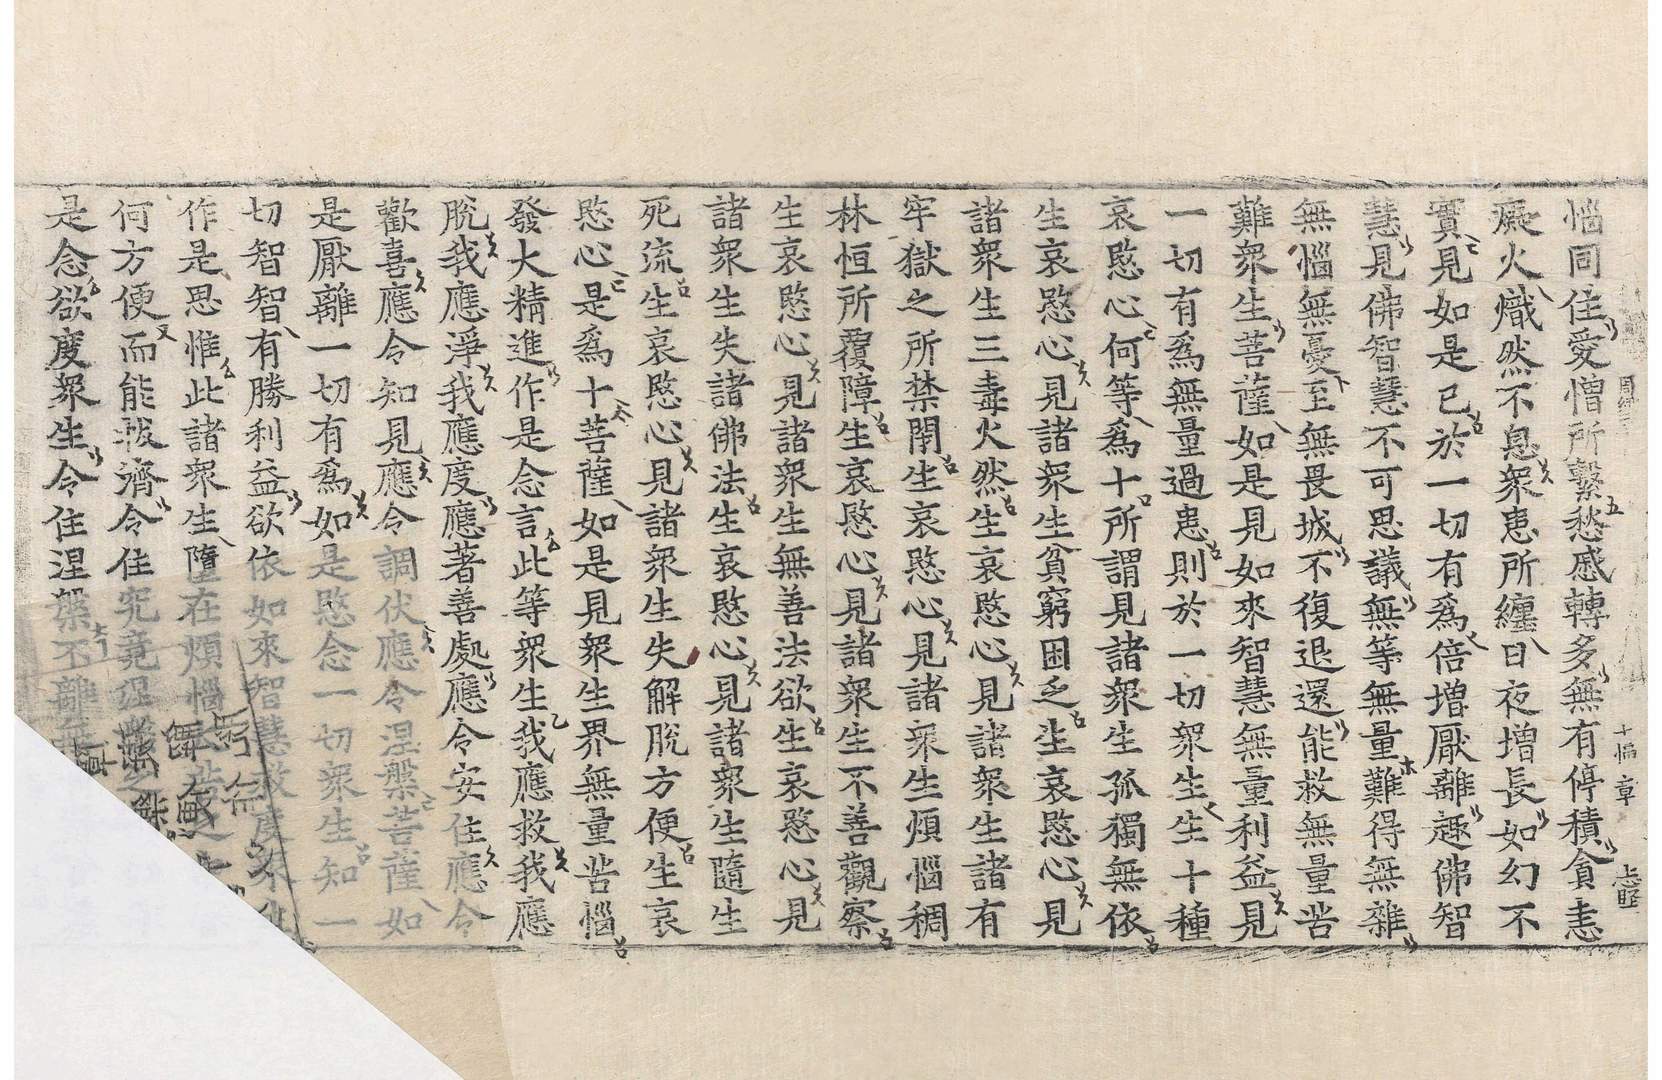 惱同住愛憎所繫愁慼轉多無有停積貪恚
癡火熾然不息衆患所纏日夜增長如幻不
實見如是已於一切有爲倍增厭離趣佛智
慧見佛智慧不可思議無等無量難得無雜
無惱無憂至無畏城不復退還能救無量苦
難衆生菩薩如是見如來智慧無量利益見
一切有爲無量過患則於一切衆生生十種
哀愍心何等爲十所謂見諸衆生孤獨無依
生哀愍心見諸衆生貧窮困乏生哀愍心見
諸衆生三毒火然生哀愍心見諸衆生諸有
牢獄之所禁閉生哀愍心見諸衆生煩惱稠
林恒所覆障生哀愍心見諸衆生不善觀察
生哀愍心見諸衆生無善法欲生哀愍心見
諸衆生失諸佛法生哀愍心見諸衆生隨生
死流生哀愍心見諸衆生失解脫方便生哀
愍心是爲十菩薩如是見衆生界無量苦惱
發大精進作是念言此等衆生我應救我應
脫我應淨我應度應著善處應令安住應令
歡喜應令知見應令調伏應令涅槃菩薩如
是厭離一切有爲如是愍念一切衆生知一
切智智有勝利益欲依如來智慧救度衆生
作是思惟此諸衆生墮在煩惱
何方便而能拔濟令住究竟涅槃之
是念欲度衆生令住涅槃不離無